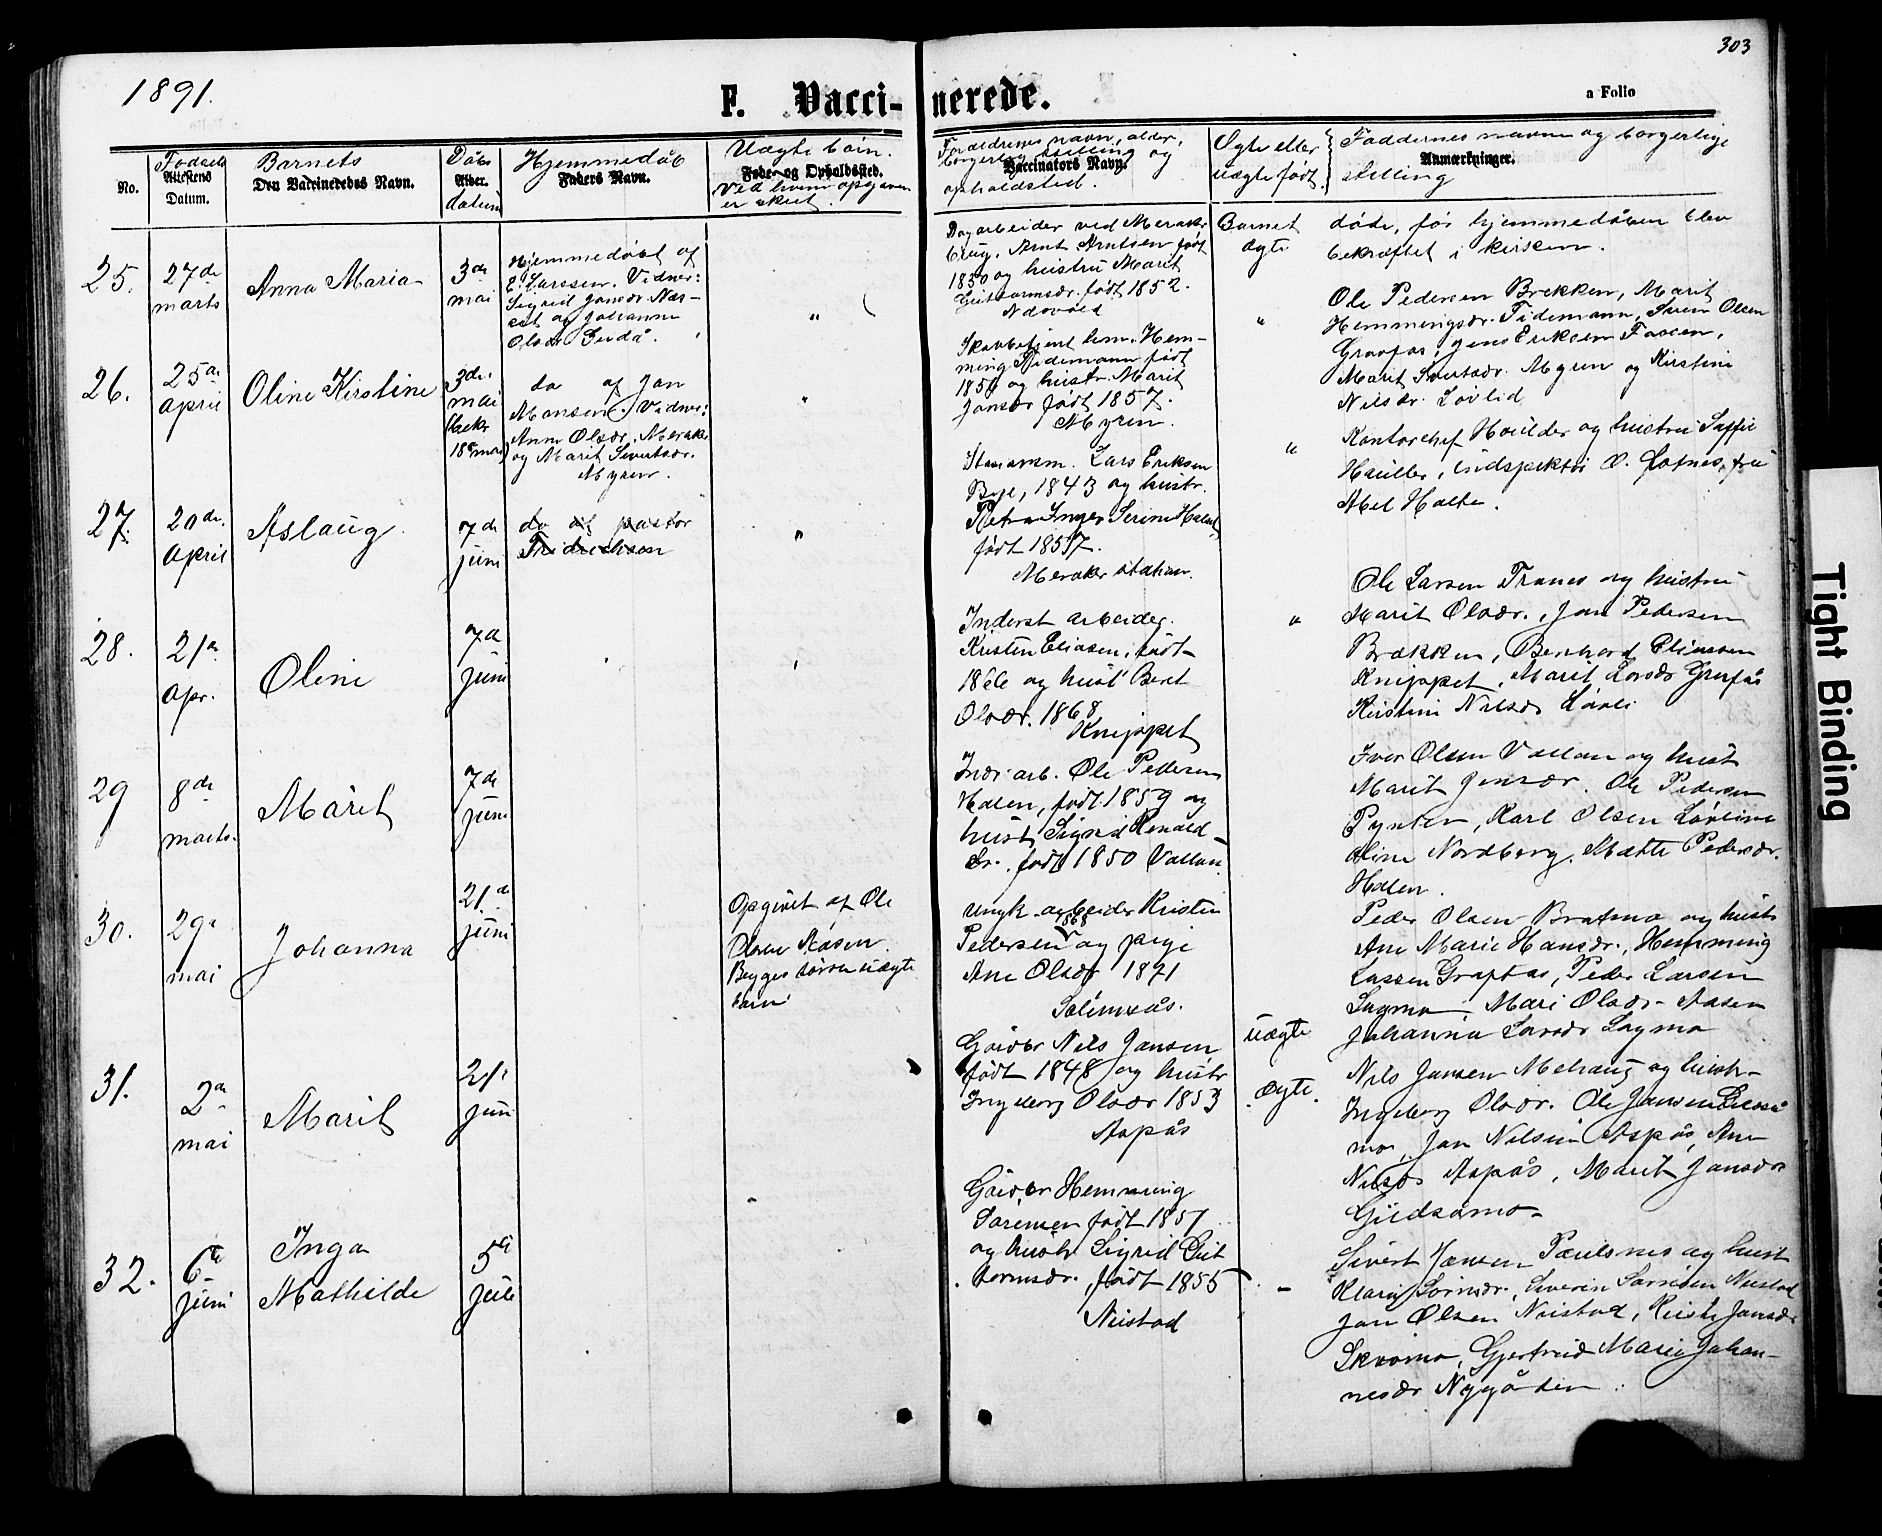 303
1891.
F. Vacci-nerede.
a Folio
No.
Fødsels
Attestens
Datum.
Barnets
Den Vaccineredes Navn.
Dåbs
Alder.
datum
Hjemmedåb
Faders Navn.
Uægte børn.
Føde- og Opholdssted.
Ved hvem opgaven
er sket.
Forældrenes navn, alder,
borgerlig stilling og
Vaccinators Navn.
opholdsted.
Ægte eller
uægte født.
Faddernes navn og borgerlige
Anmærkninger.
stilling
25.
27de
marts
Anna Maria
3de
mai
Hjemmedøbt af
E. Larssen. Vidner:
Sigrid Jonsdr. Næs-
set og Johanna
Olsdr.
"
Dagarbeider ved Meraker
brug, Arnt Arntsen født
1850 og hustru Marit
Guttormsdr. født 1852.
Barnet
ægte
døde, før hjemmedåben blev
bekræftet i kirken.
26.
25de
April
Oline Kirstine
3de
mai
bekr
18de mai
do af Jon
Monsen. Vidner:
Anne Olsdr. Meraker
og Marit Sivertsdr.
Myren.
"
Skovbetjent Hem-
ming Tidemann født
1859 og hustr. Marit
Jonsdr født 1857.
Myren.
"
Ole Pedersen Brekken, Marit
Hemmingsdr. Tidemann, Sven Olsen
Gravfos, Jens Eriksen
Marit Sivertsdr. Myren og Kirstine
Nilsdr. Løvlid
27.
20de
April
Aslaug
7de
juni
do af pastor
Fridrichsen
"
Stationsm. Lars Eriksen
Bye, 1843 og hustr.
Petra Inger Serine
født 1857.
Meraker station.
"
Kontorchef Houlder og hustru Soffie
Houlder, indspektør O. Lofnes, fru
Abel Holte.
28.
21de
Apr.
Oline
7de
juni
Inderst arbeider
Kristen Eliasen, født
1866 og hust Beret
Olsdr. 1868
Knippet
"
Ole Larsen Trones og hustru
Marit Olsdr., Jon Pedersen
Brækken, Bernhard Eliassen
Knippet, Marit Larsdr Gravfås
Kirstine Nilsdr Løvli
29
8de
marts.
Marit
7de
juni
Indr. arb. Ole Pedersen
Halen, født 1859 og
hust. Sigrid
dr. født 1850 Vallan
Iver Olsen Vallan og hust
Marit Jonsdr. Ole Pedersen
Pynten, Karl Olsen
Oline Nordberg, Mætte Pedersdr.
Halen.
30.
29de
mai
Johanna
21de
juni
Opgivet af Ole
Olsen Åsen.
Begges første uægte
barn
Ungk. arbeider Kristen
Pedersen 1868 og pige
Ane Olsdr 1871
uægte
Peder Olsen Bratmo og hust
Ane Marie Hansdr., Hemming
Larsen Grafaas, Peder Larsen
Sagmo Mari Olsdr. Aasen
Johanna Larsdr Sagmo
31.
2de
mai
Marit
21de
juni
Gårdbr Nils Jonsen
født 1848 og hustr
Ingeborg Olsdr 1853
Aspås
ægte.
Nils Jonsen Mehaug og hustr.
Ingeborg Olsdr. Ole Jonsen Gudså
mo, Jon Nilsen Aspås, Ane
Nilsdr Aspås, Marit Jonsdr
Gudsåmo
32.
6te
juni
Inga
Mathilde
5te
juli
Gårdbr Hemming
Sørensen født 1857
og hustr Sigrid Gut
tormsdr., født 1855
Nustad
-
Sivert Jonsen Paulsnes og hust
Sørensdr., Severin Sørensen Nustad
Jon Olsen Nustad, Jonsdr
Skromo, Gjertrud Marie Johan-
nesdr Nygården.
Tight Binding